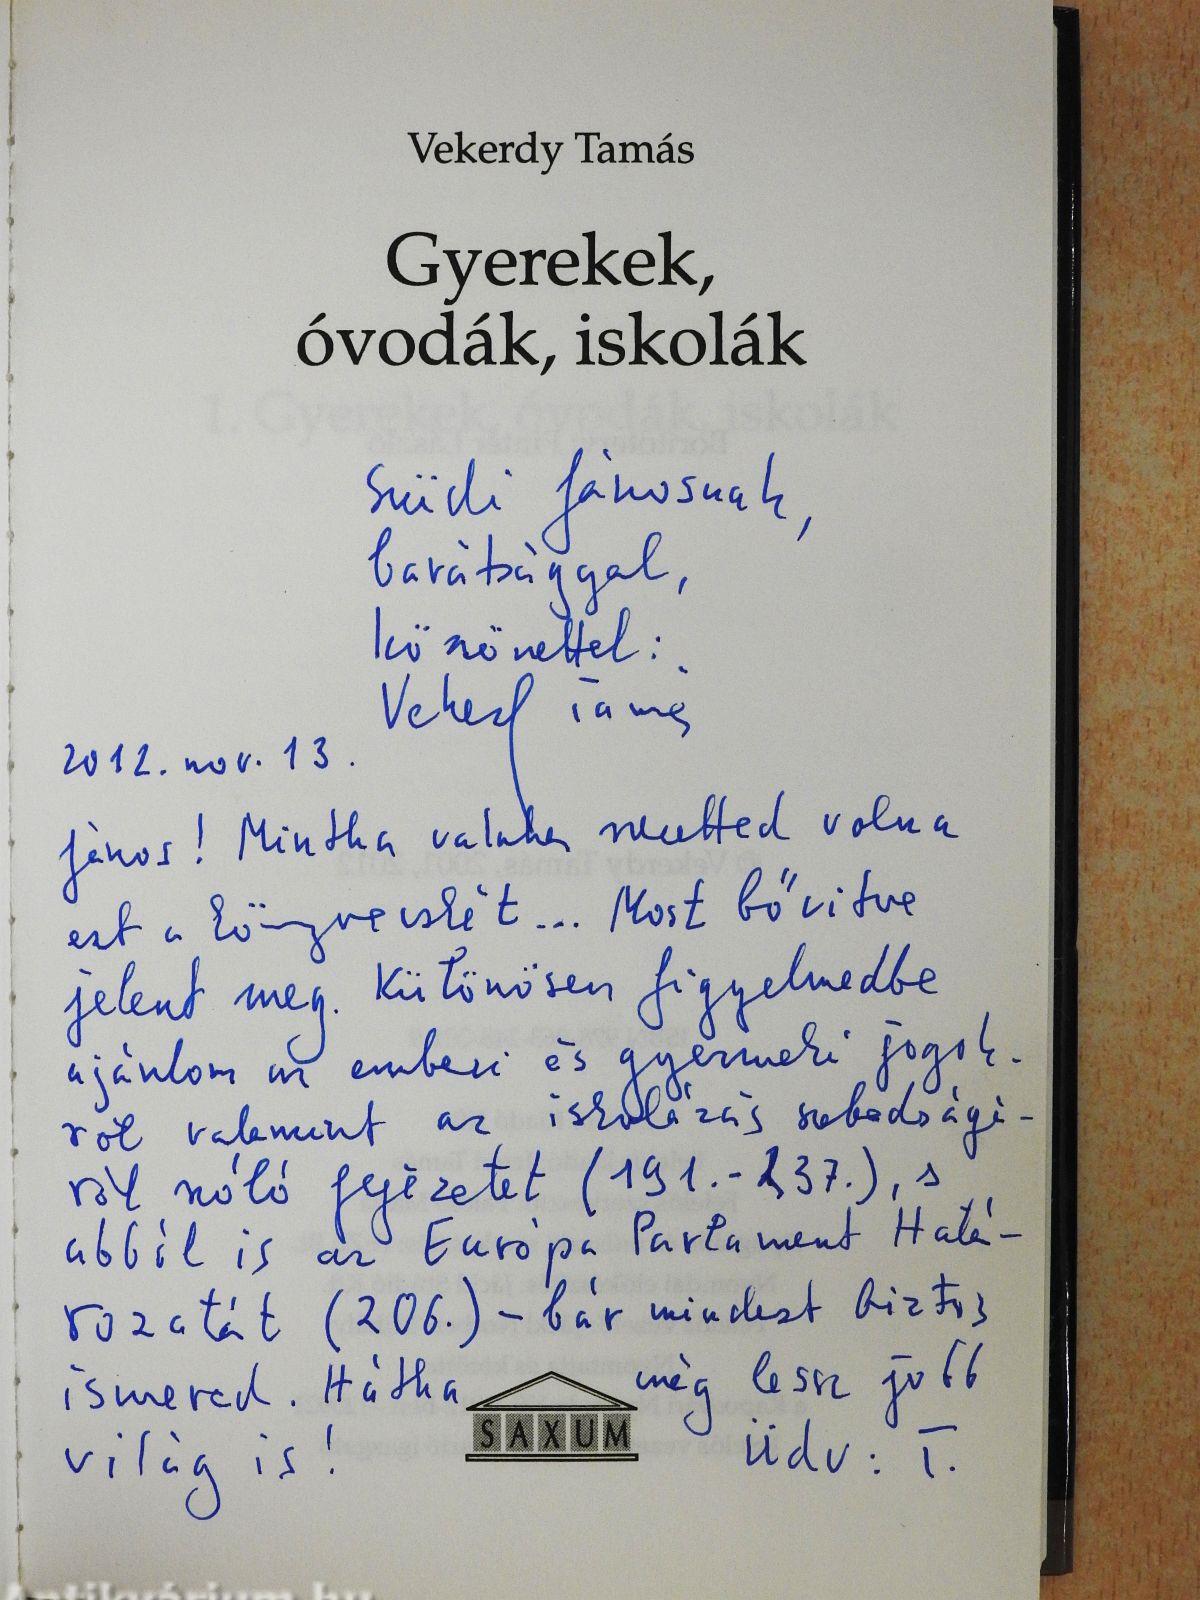 Vekerdy Tamás
Gyerekek,
óvodák, iskolák
Szüdi Jánosnak,
barátsággal,
köszönettel:
Vekerdy Tamás
2012. nov. 13.
János! Mintha valaha szeretted volna
ezt a könyvecskét... Most bővitve
jelent meg. Különösen figyelmedbe
ajánlom az emberi és gyermeki jogok-
ról valamint az iskolázás szabadságá-
ról szóló fejezetet (191.-237.), s
abból is az Európa Parlament Hatá-
rozatát (206.) - bár mindezt biztos
ismered. Hátha még lessz jobb
világ is!
Üdv: T.
SAXUM
Antikvárium.hu